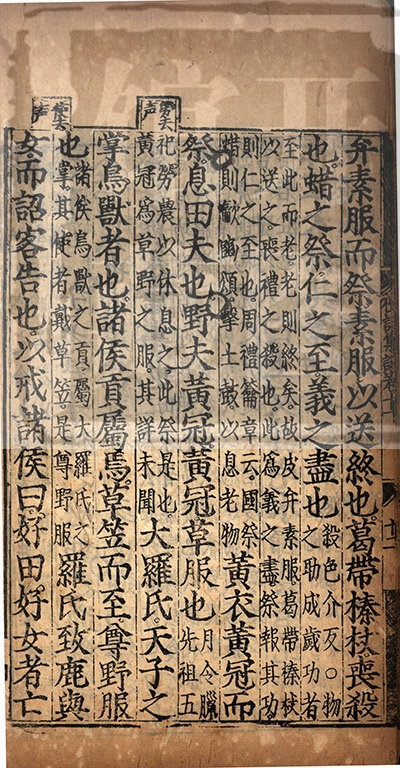 弁素服而祭素服以送終也葛帶榛杖喪殺
也蜡之祭仁之至義之盡也殺色介反○物之助成歲功者
至此而老老則終矣故皮弁素服葛帶榛杖以送之喪禮之殺也此爲義之盡祭報其功
則仁之至也周禮籥章云國祭蜡則龡豳頌擊土鼓以息老物黃衣黃冠而
祭息田夫也野夫黃冠黃冠草服也月令臘先祖五
勞去声
祀勞農以休息之此祭是也黃冠爲草野之服其詳未聞大羅氏天子之
掌鳥獸者也諸侯貢屬焉草笠而至尊野服
使去声
也諸侯鳥獸之貢屬大羅氏之掌其使者戴草笠是尊野服羅氏致鹿與
女而詔客告也以戒諸侯曰好田好女者亡